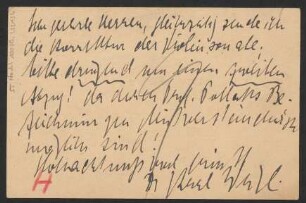 Sehr geehrte Herren, gleichzeitig sende ich
die Korrektur der Violinsonate.
bitte dringend um einen zweiten
Abzug! da durch Prof. Pollaks Be-
zeichnungen Missverständnisse
möglich sind!
Hochachtungsvoll
Dr Karl Weigl.
H